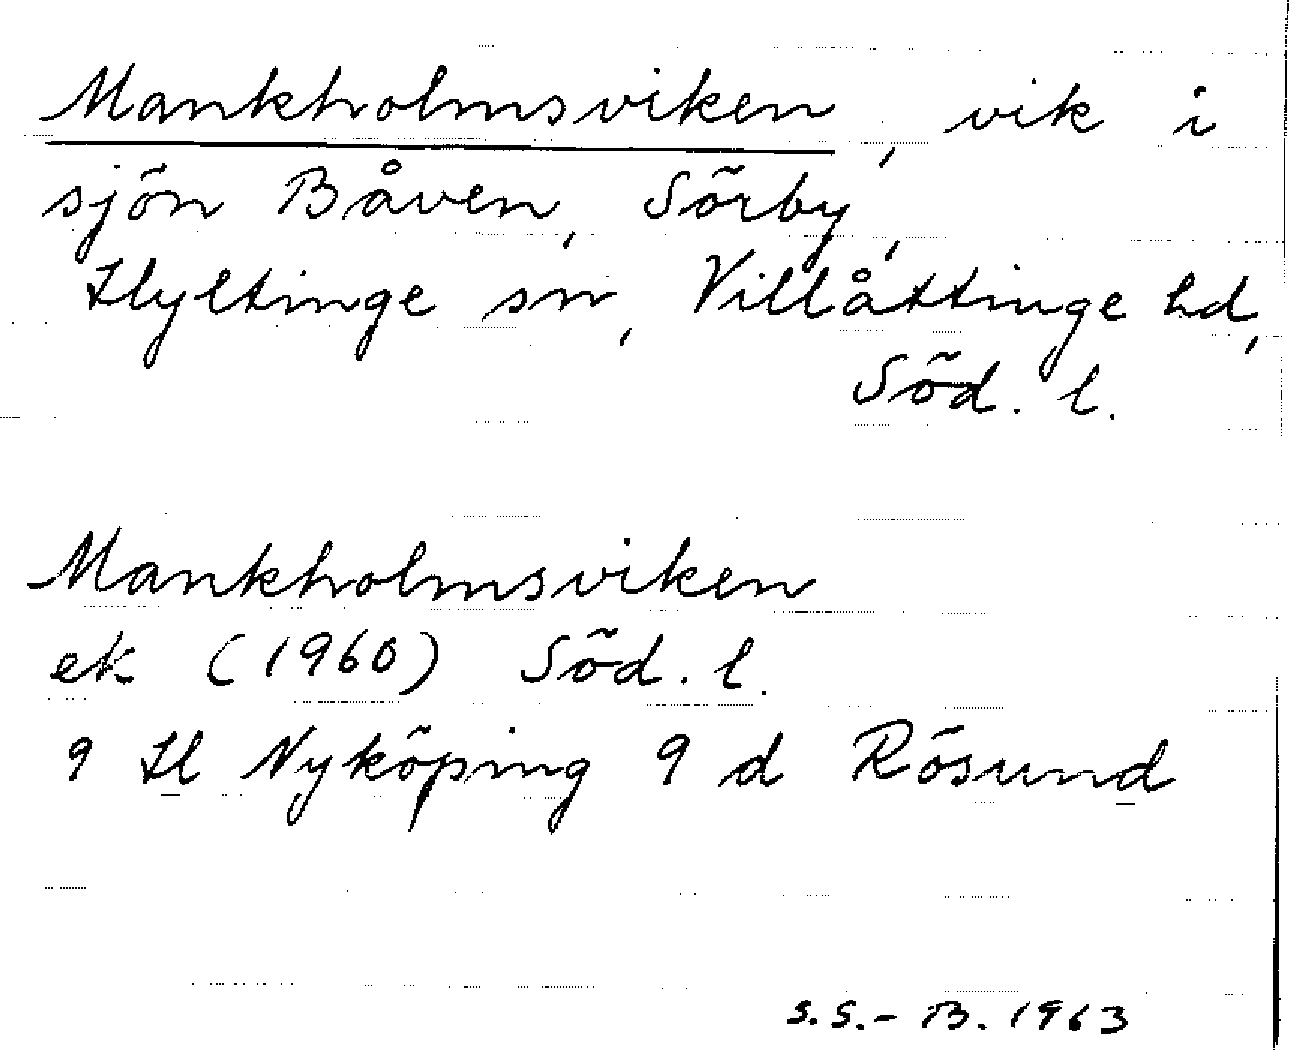 Mankholmsviken, vik i
sjön Båven, Sörby,
Hyltinge sn, Villåttinge hd,
Söd. l.
Mankholmsviken
ek (1960) Söd. l.
9 H Nyköping 9 d Rösund
S.S.-B. 1963